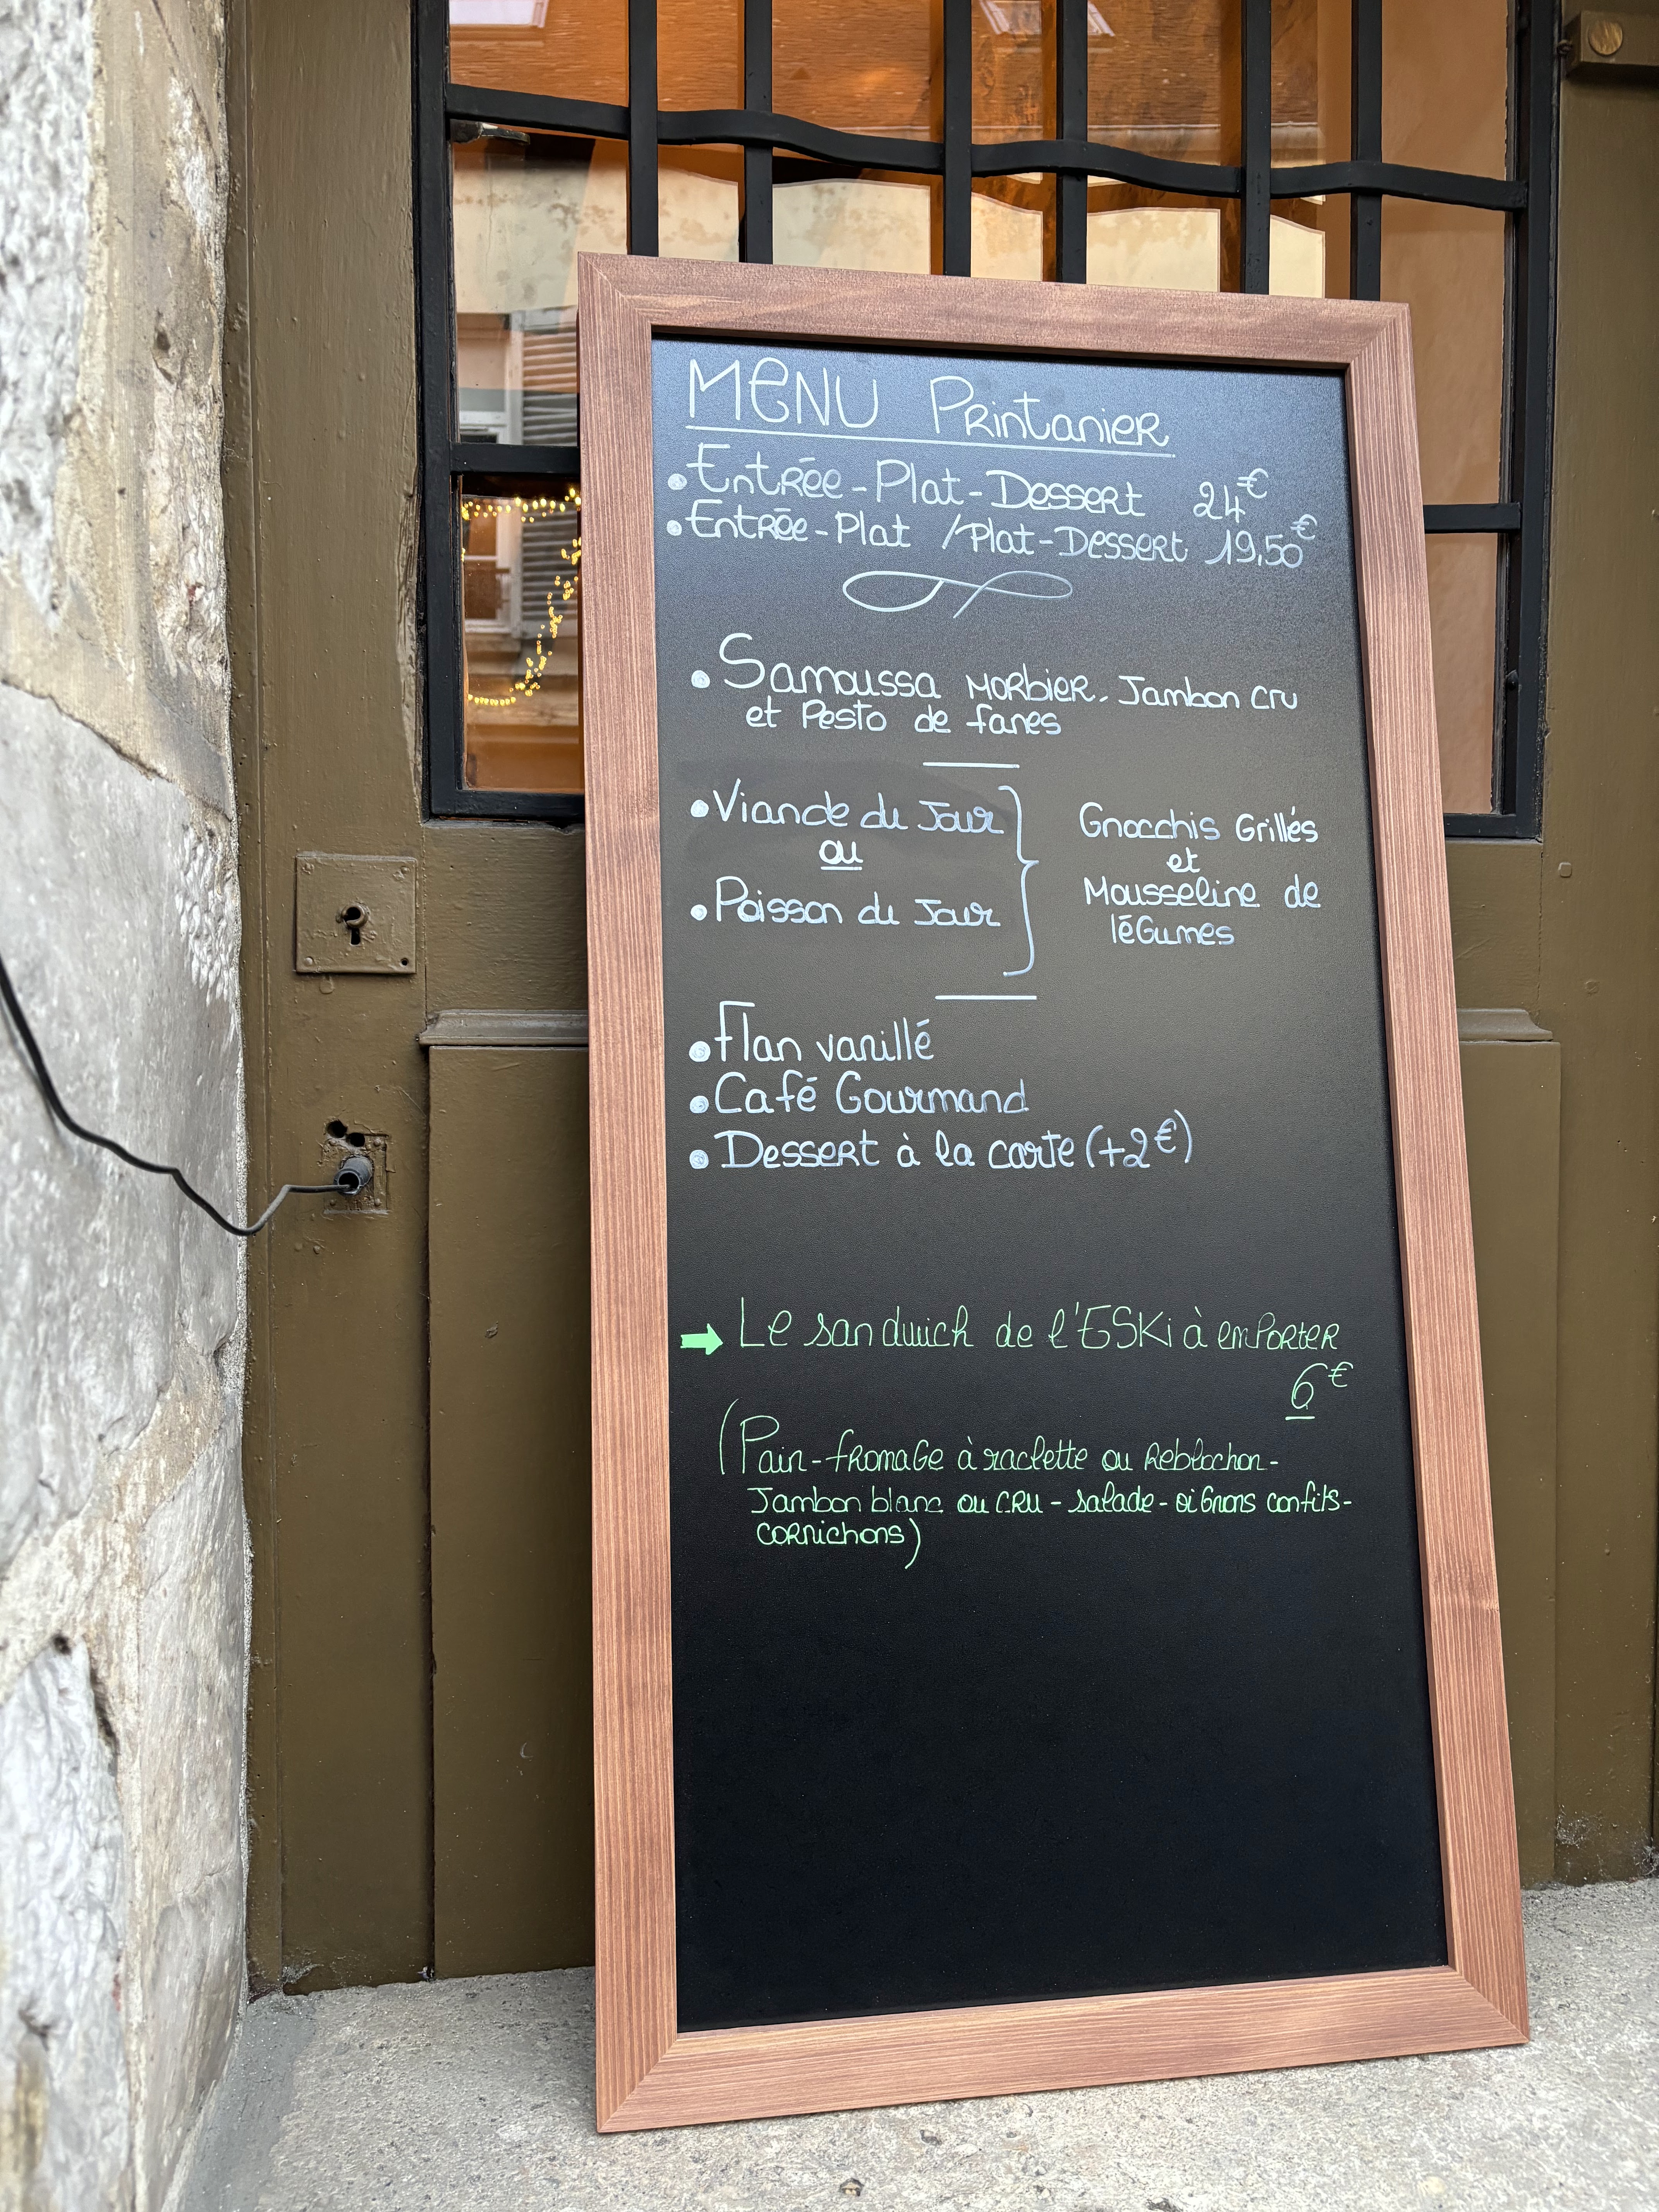 MENU Printanier
• Entrée-Plat-Dessert 24€
• Entrée-Plat /Plat-Dessert 19,50€
• Samoussa Morbier, Jambon cru
et Pesto de fanes
• Viande du Jour
ou
• Poisson du Jour
Gnocchis Grillés
et
Mousseline de
léGumes
• Flan vanillé
• Café Gourmand
• Dessert à la carte (+2€)
➡ Le sandwich de l'ESKi à emporter
6€
(Pain-fromaGe à raclette ou Reblochon-
Jambon blanc ou cru - salade - oiGnons confits-
cornichons)